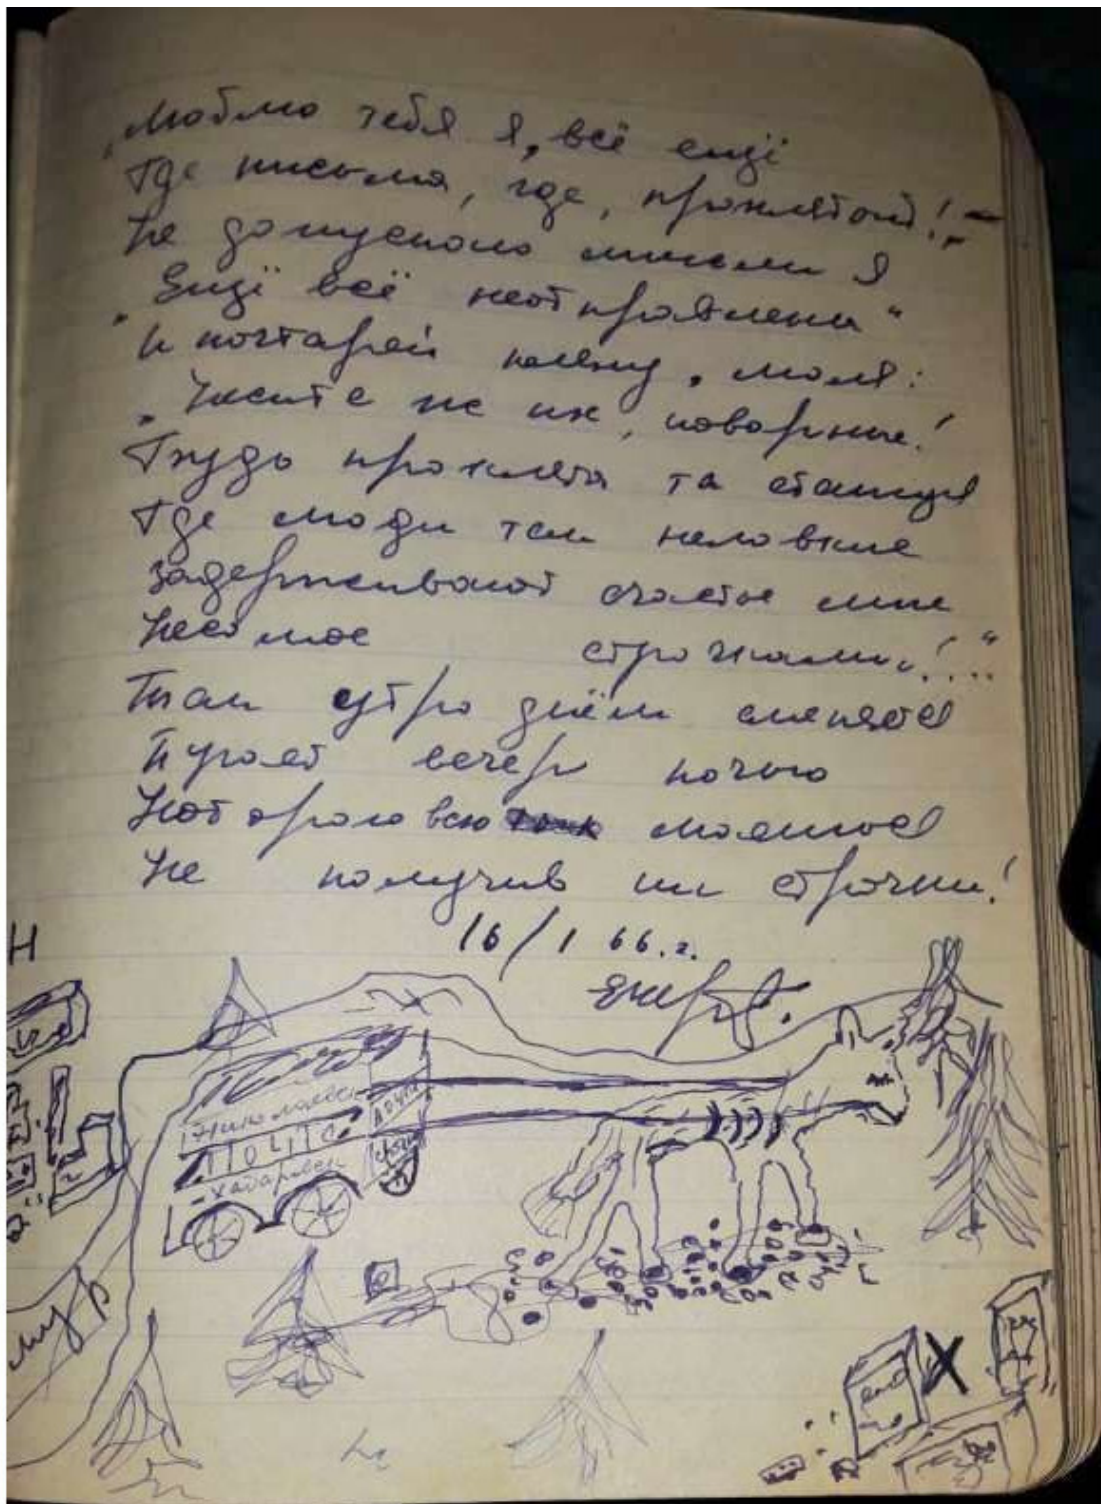 „Люблю тебя я, всё ещё
Где письма, где, проклятой! –
Не допускаю мысли я
„Ещё всё неотправлены"
И почтарей кляну, моля:
„Несите же их, коварные!
Будь проклята та станция
Где люди там неловкие
задерживают счастье мне
Несомое строчками..!.."
Так утро днём сменяется
Пугает вечер ночью
Которою всю маялся
Не получив ни строчки!
16/1 66.г.
Н
Николаевск
ПОЧТА
Хабаровск
мур